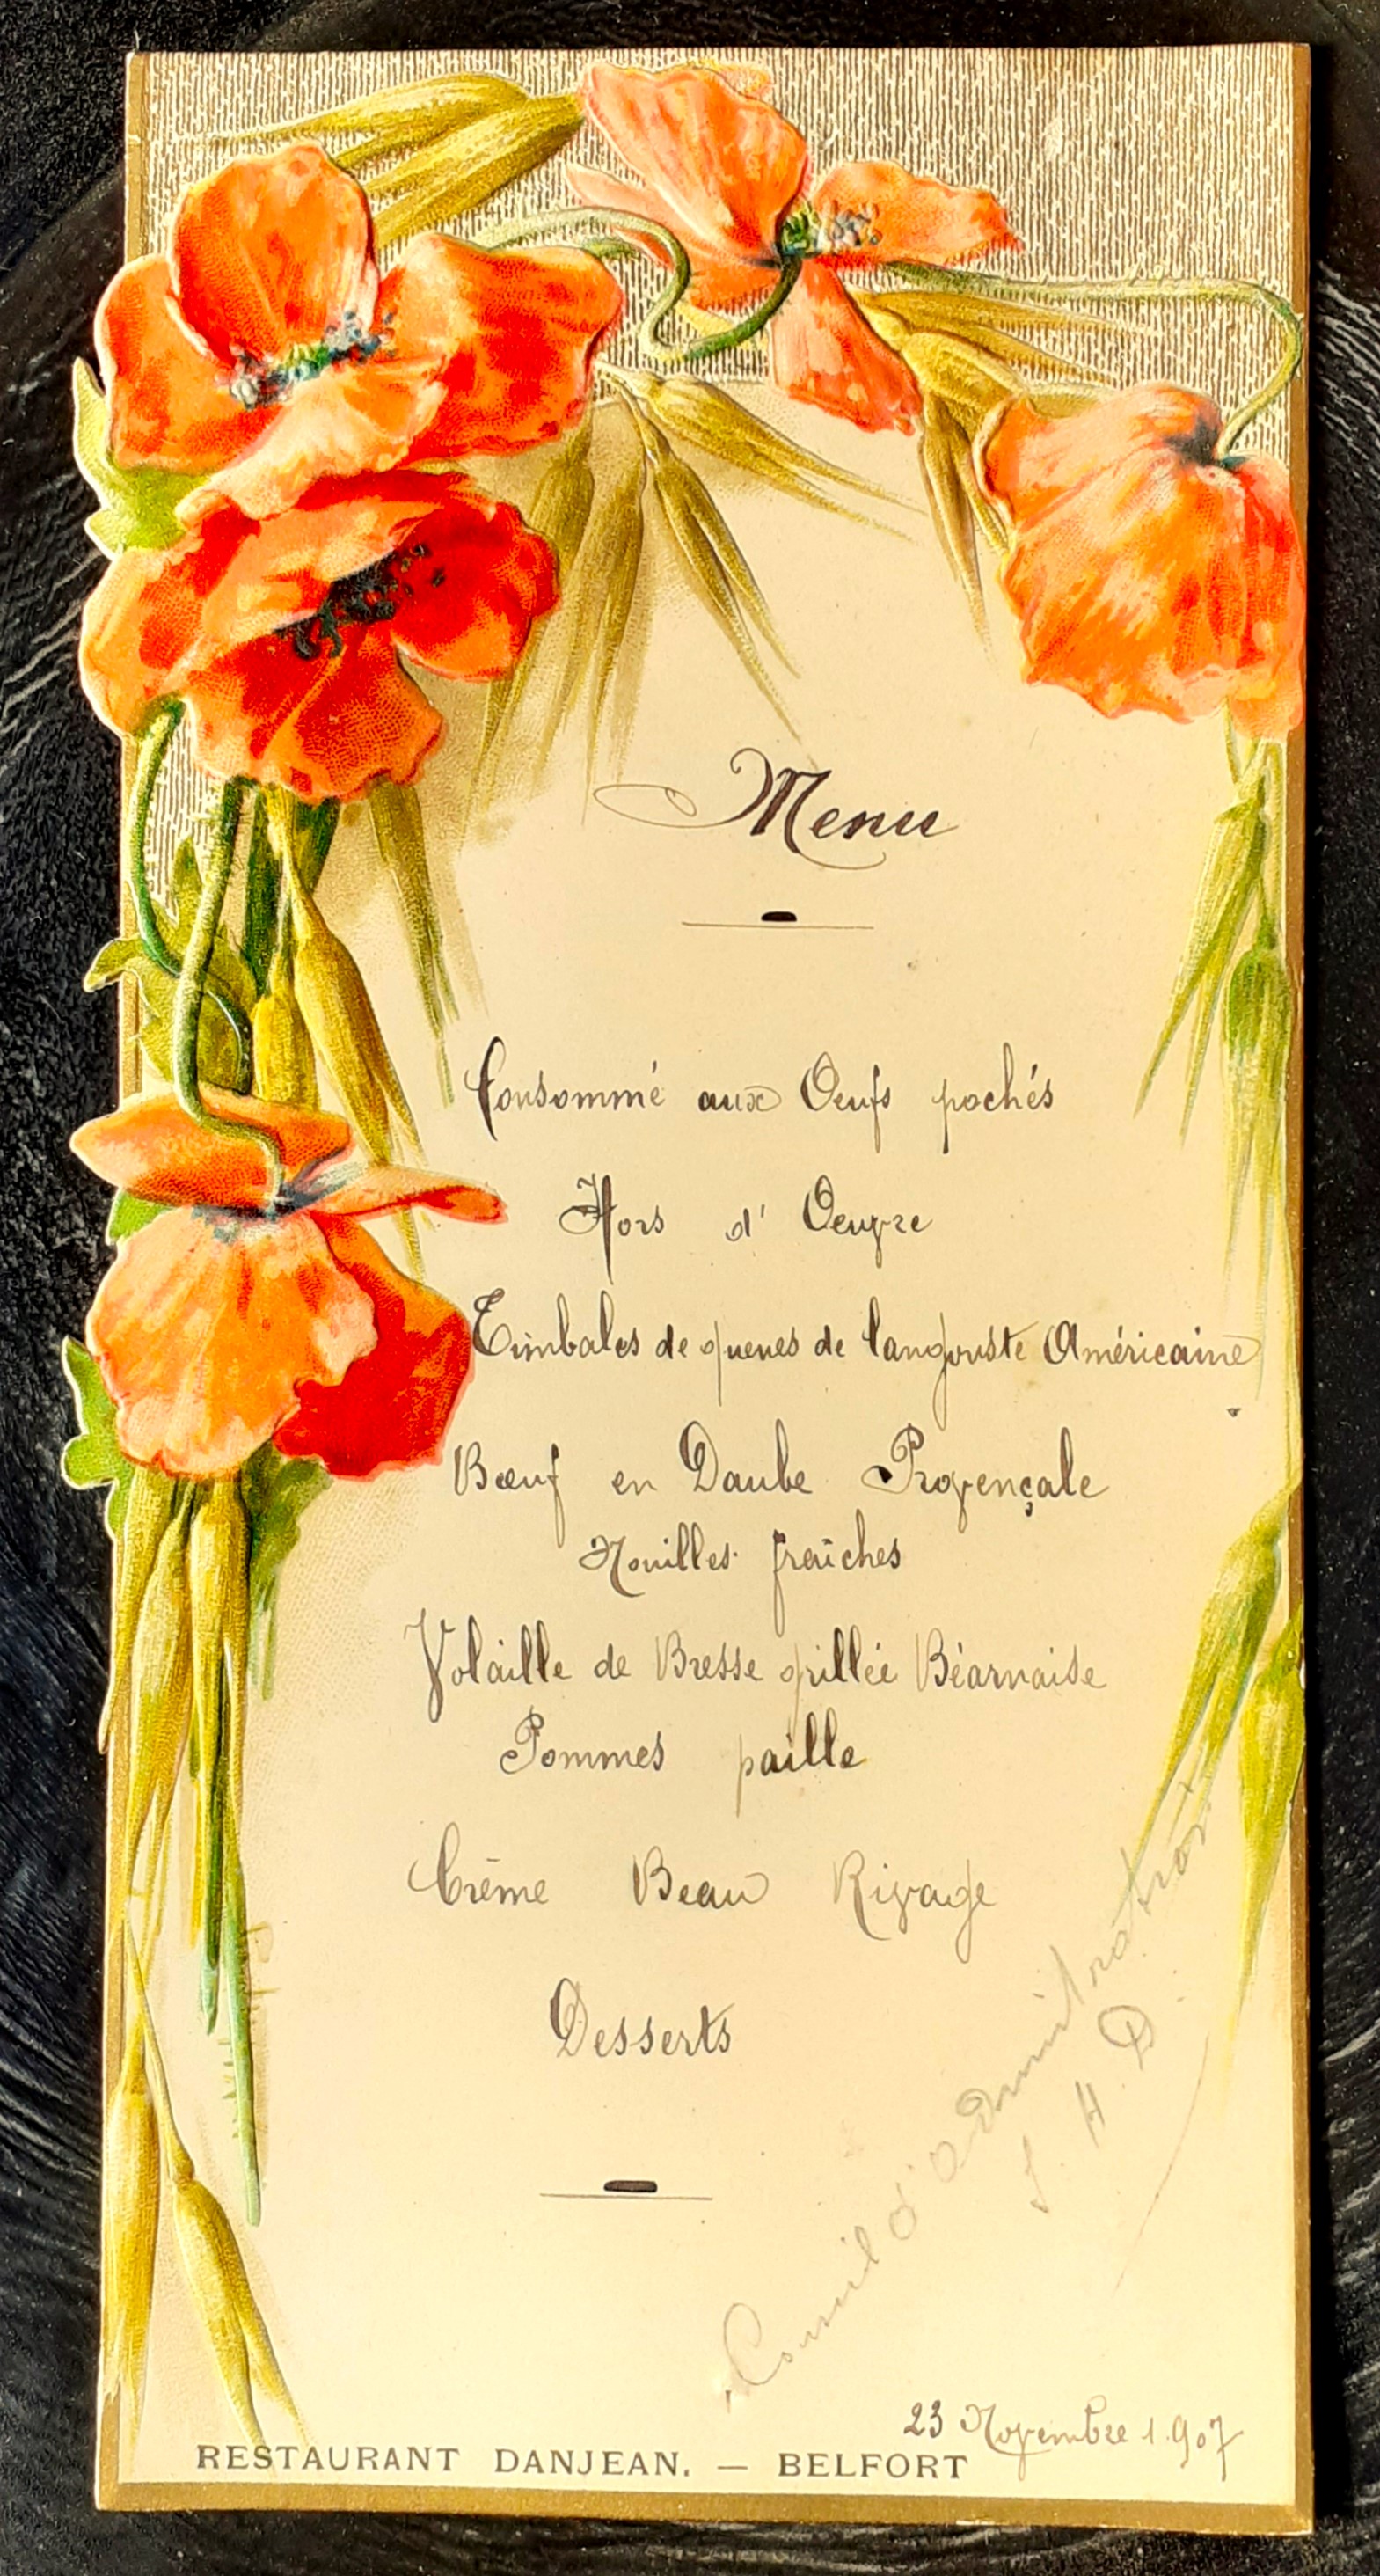 Menu
Consommé aux Oeufs pochés
Hors d' Oeuvre
Timbales de queues de langouste Américaine
Bœuf en Daube Provençale
Nouilles fraîches
Volaille de Bresse grillée Béarnaise
Pommes paille
Crème Beau Rivage
Desserts
Conseil d'administration
S. H. D.
23 Novembre 1.907
RESTAURANT DANJEAN. — BELFORT